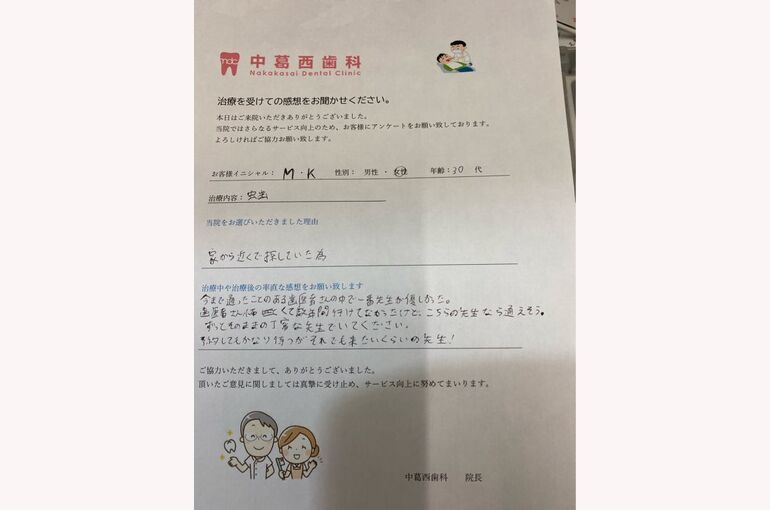 ndc
中葛西歯科
Nakakasai Dental Clinic
治療を受けての感想をお聞かせください。
本日はご来院いただきありがとうございました。
当院ではさらなるサービス向上のため、お客様にアンケートをお願い致しております。
よろしければご協力お願い致します。
お客様イニシャル： M・K 性別： 男性 ・ 女性 年齢：30 代
治療内容：虫歯
当院をお選びいただきました理由
家から近くで探していた為
治療中や治療後の率直な感想をお願い致します
今まで通ったことのある歯医者さんの中で一番先生が優しかった。
歯医者さん怖くて数年間行けてなかったけど、こちらの先生なら通えそう。
ずっとそのままの丁寧な先生でいてください。
予約してもかなり待つがそれでも来たいくらいの先生！
ご協力いただきまして、ありがとうございました。
頂いたご意見に関しましては真摯に受け止め、サービス向上に努めてまいります。
中葛西歯科 院長